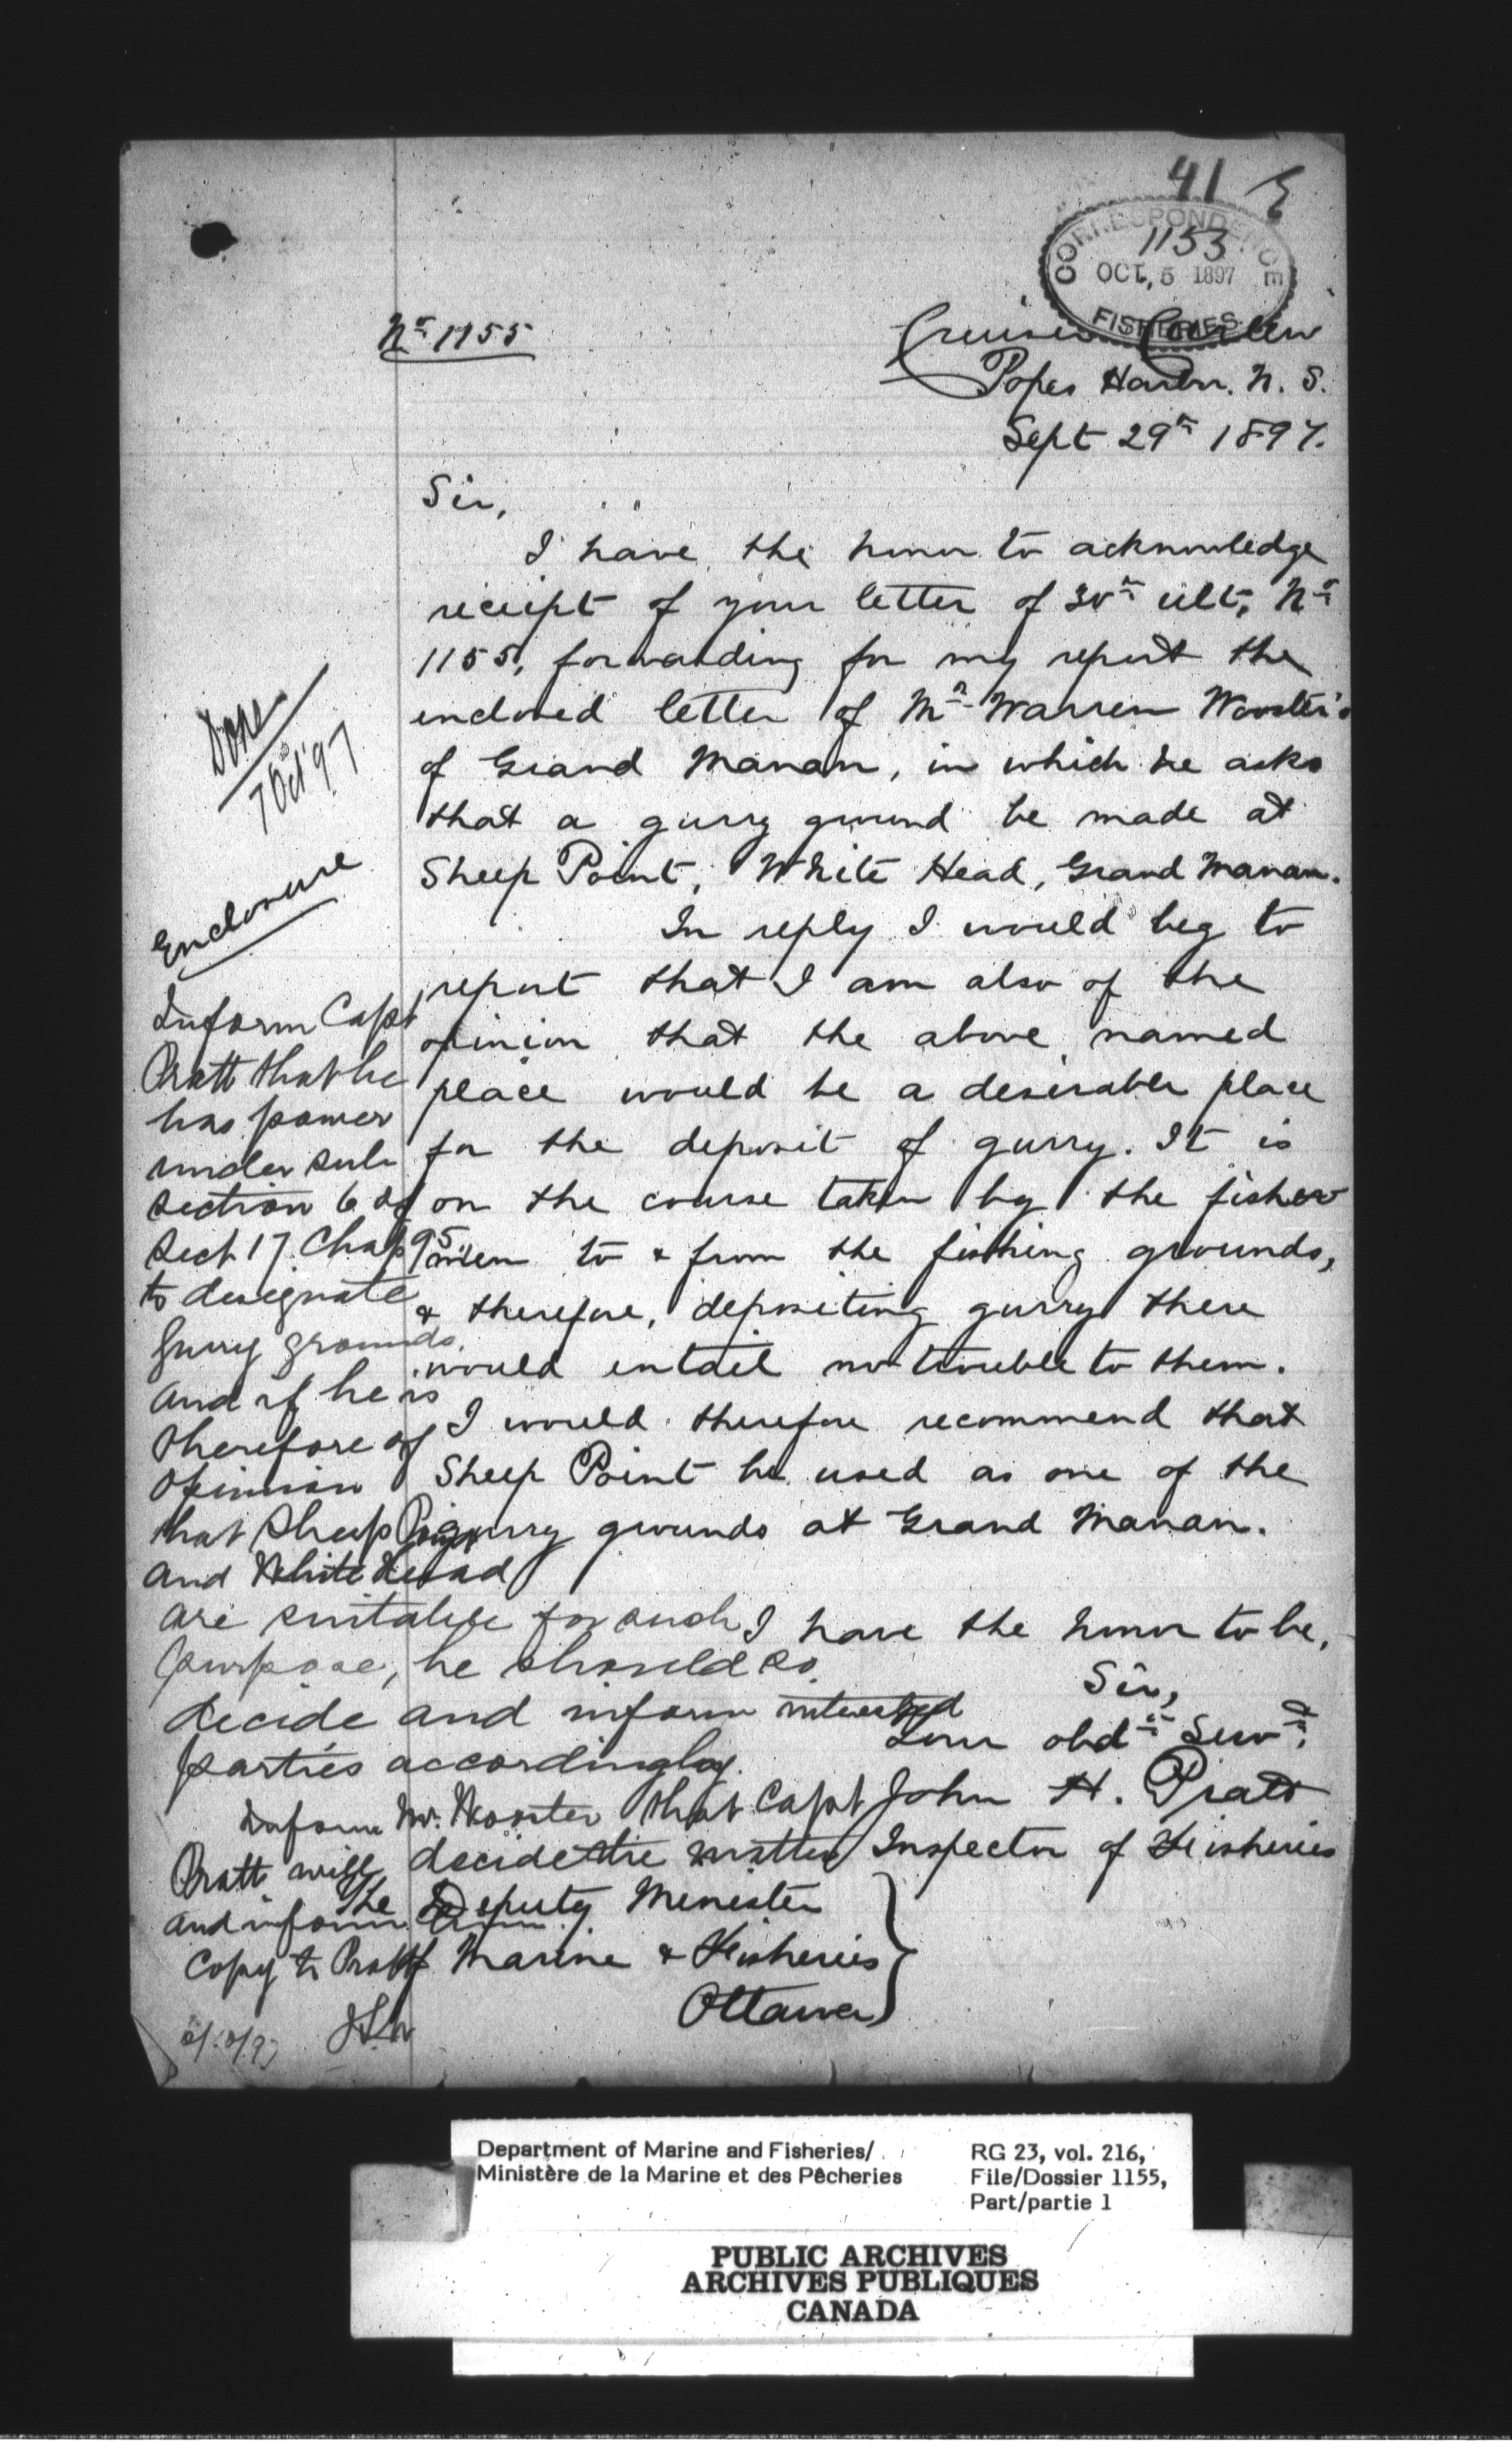 41
CORRESPONDENCE
1153
OCT. 5 1897
FISHERIES
No 1155
Cruiser Curlew
Popes Harbr. N. S.
Sept 29th 1897.
Sir,
I have the honor to acknowledge
receipt of your letter of 30th ult, No
1155, forwarding for my report the
enclosed letter of Mr Warren Wooster's
of Grand Manan, in which he asks
that a gurry ground be made at
Sheep Point, White Head, Grand Manan.
In reply I would beg to
report that I am also of the
opinion that the above named
place would be a desirable place
for the deposit of gurry. It is
on the course taken by the fisher
men to & from the fishing grounds,
& therefore, depositing gurry there
would entail no trouble to them.
I would therefore recommend that
Sheep Point be used as one of the
gurry grounds at Grand Manan.
I have the honor to be,
Sir,
Your obdt Servt
John H. Pratt
Inspector of Fisheries
The Deputy Minister
of Marine & Fisheries
Ottawa
Done
7 Oct '97
Enclosure
Inform Capt
Pratt that he
has power
under sub
section 6 of
Sect 17 Chap 95
to designate
Gurry grounds,
and if he is
therefore of
opinion
that Sheep Point
and White Head
are suitable for such
purpose, he should so
decide and inform interested
parties accordingly.
Inform Mr. Wooster that Capt
Pratt will decide the matter
and inform him.
Copy to Pratt
Department of Marine and Fisheries/
Ministère de la Marine et des Pêcheries
RG 23, vol. 216,
File/Dossier 1155,
Part/partie 1
PUBLIC ARCHIVES
ARCHIVES PUBLIQUES
CANADA